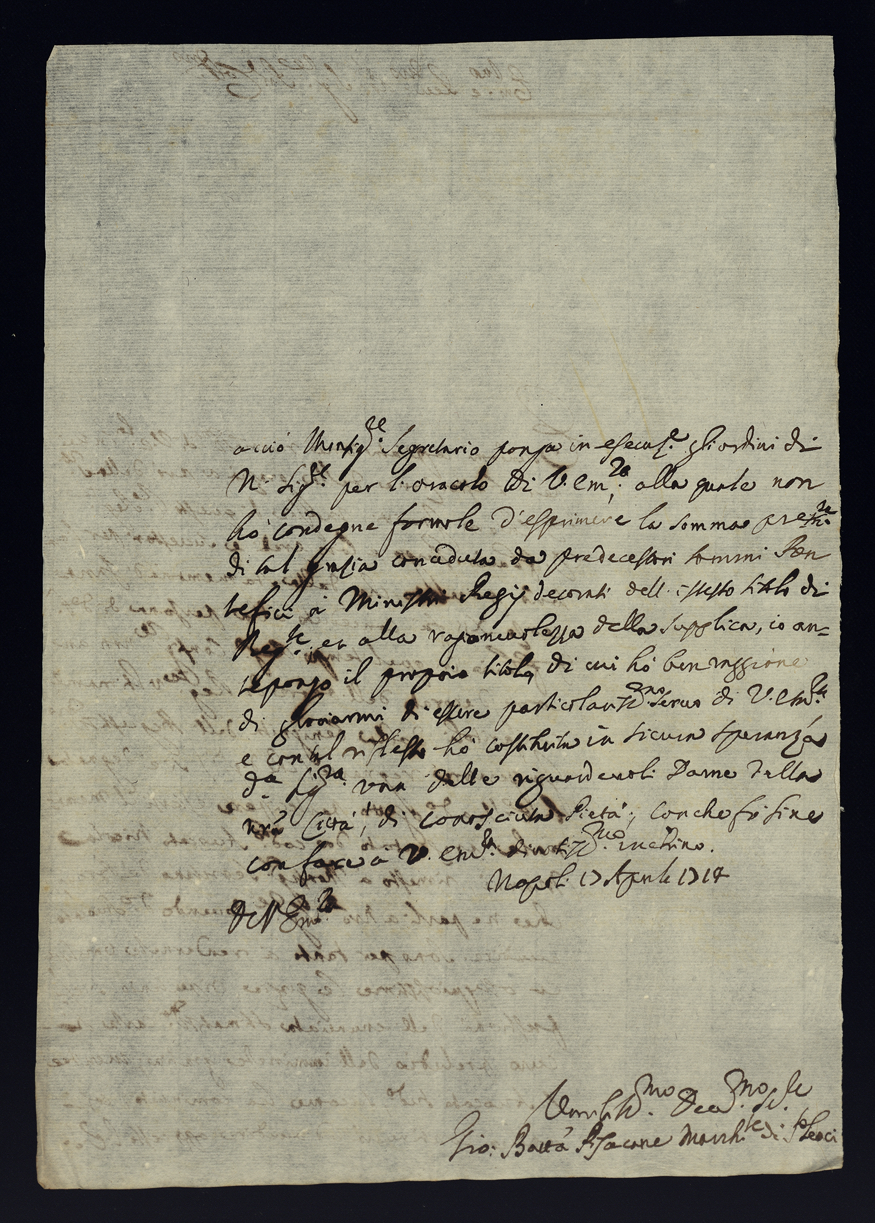 acciò Monsig.re Segretario ponga in esecuz.e gli ordini di
N. Sig.re per l'oracolo di V. Em.za, alla quale non
hò condegne formole d'esprimere la somma
di tal grazia conceduta da predecessori sommi Pon
tefici à Ministri Regij decorati dell'istesso titolo di
Reg.te, et alla ragionevolezza della supplica, io an=
tepongo il proprio titolo, di cui hò ben raggione
di gloriarmi di essere particolariss.mo servo di V. Em.za
e con tal riflesso hò costituita in sicura speranza
d.a Sig.ra una delle riguardevoli Dame della
nrã Città, di conosciuta Pietà, con che fò fine
con fare a V. Em.za divotiss.mo inchino.
Napoli 17 Aprile 1714
Di V. Em.za
Umiliss.mo Dev.mo
Gio: Battã Pisacane March.se di S. Leuci